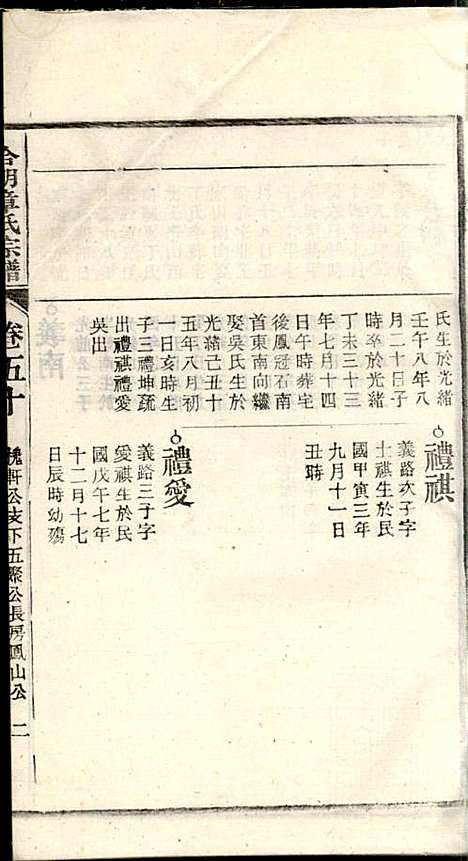 氏生於光緒
壬午八年八
月二十日子
時卒於光緒
丁未三十三
年七月十四
日午時葬宅
後鳳冠石南
首東南向繼
娶吳氏生於
光緒己丑十
五年八月初
一日亥時生
子三禮坤疏
出禮祺禮愛
吳出
禮祺
義路次子字
士祺生於民
國甲寅三年
九月十一日
丑時
禮愛
義路三子字
愛祺生於民
國戊午七年
十二月十七
日辰時幼殤
合明章氏宗譜
卷五十
槐軒公支下五縣公長房鳳山公
二